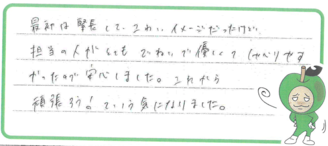 最初は緊張して、こわいイメージだったけど、
担当の人がとてもていねいで優しくてしゃべりやす
かったので安心しました。これから
頑張ろう！という気になりました。